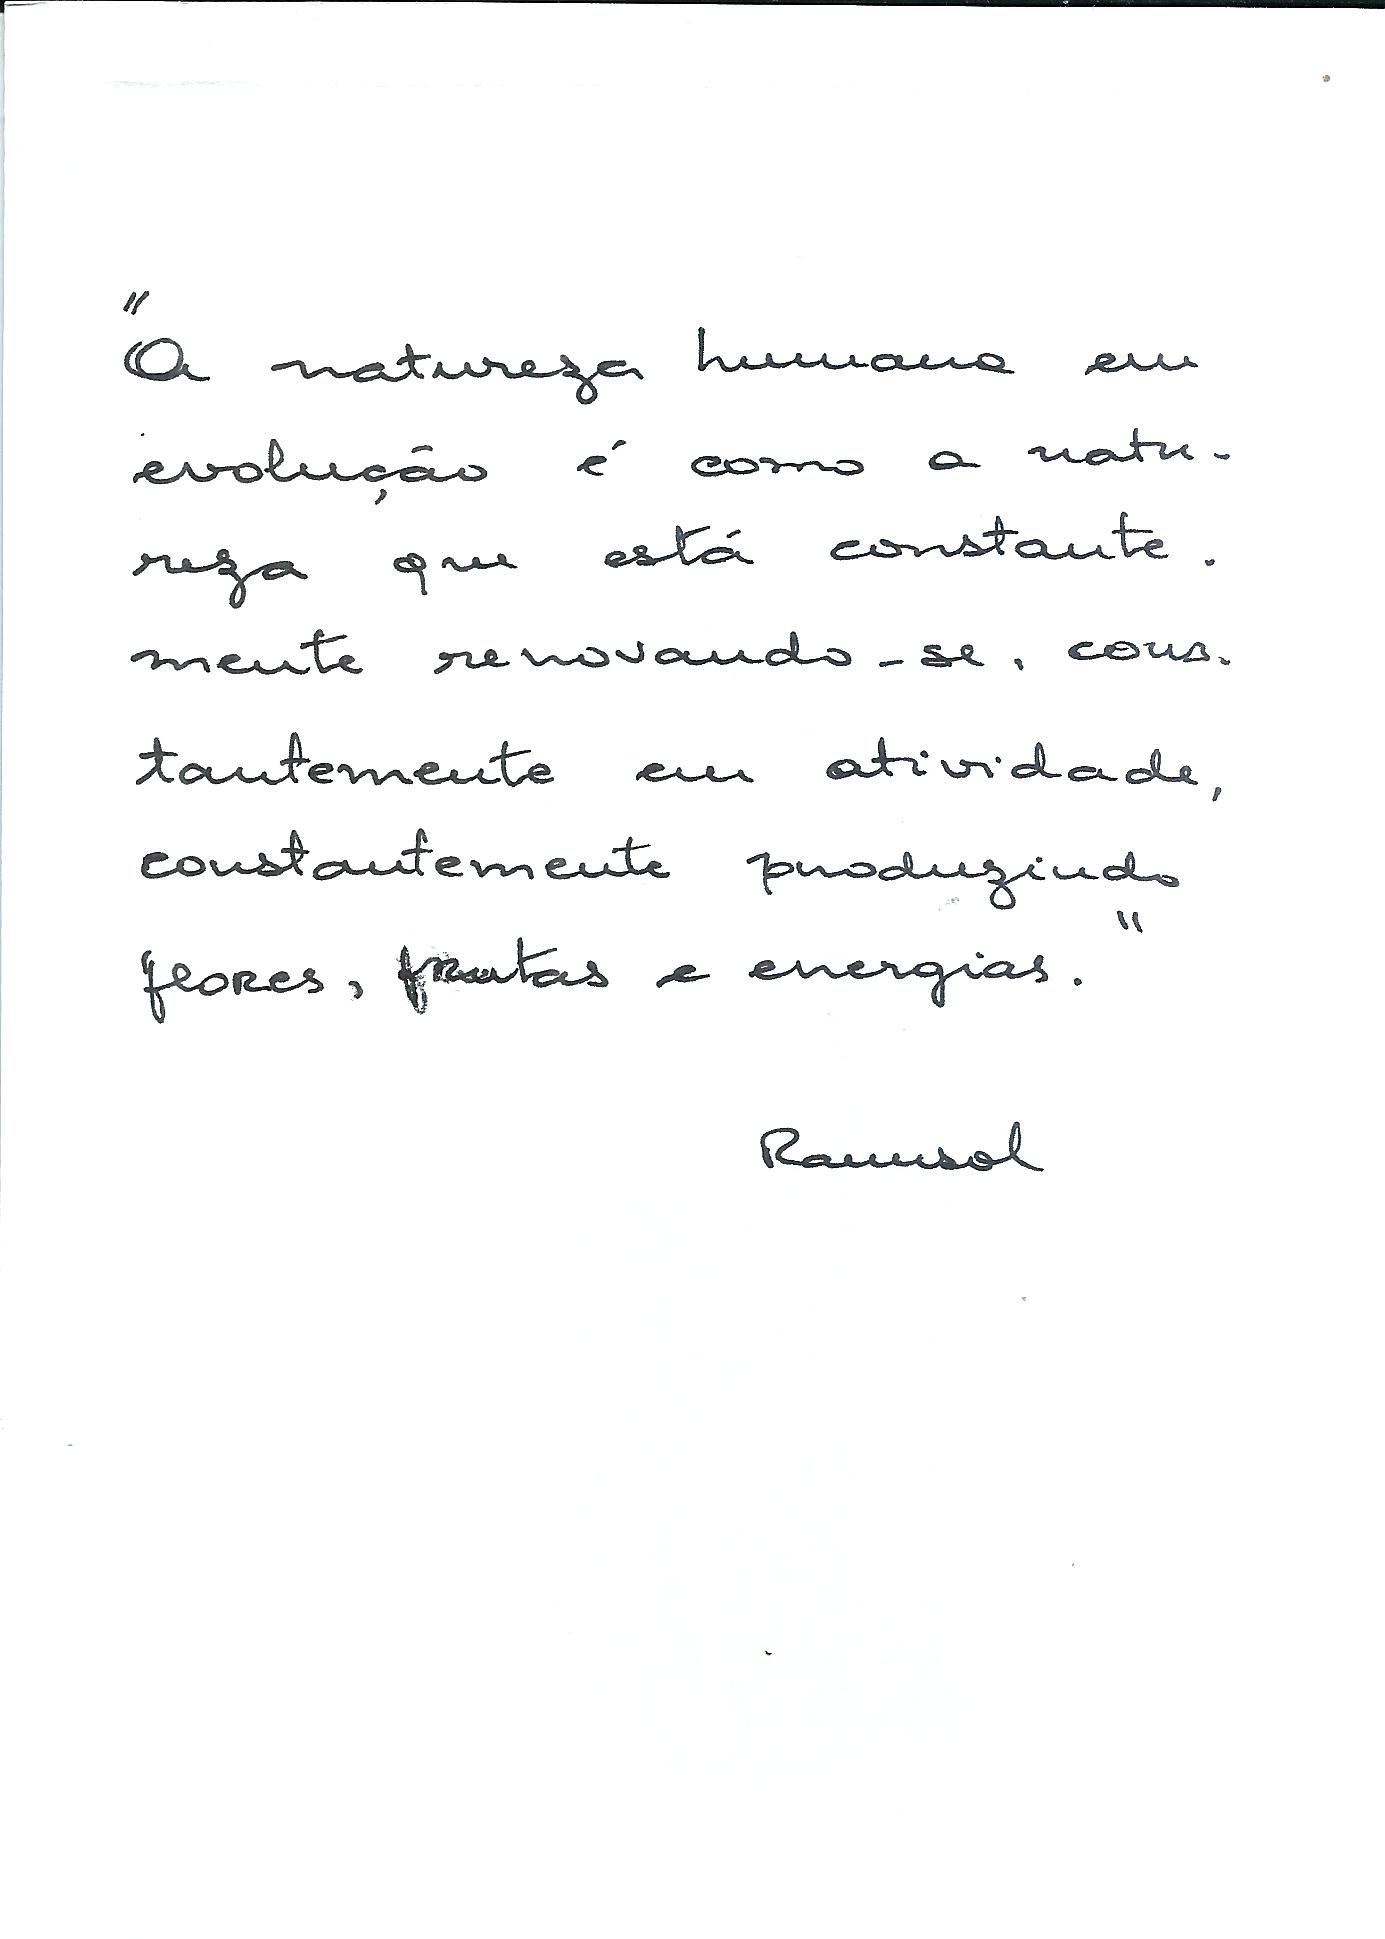 "A natureza humana em
evolução é como a natu-
reza que está constante-
mente renovando-se, cons-
tantemente em atividade,
constantemente produzindo
flores, frutas e energias."
Ramsol